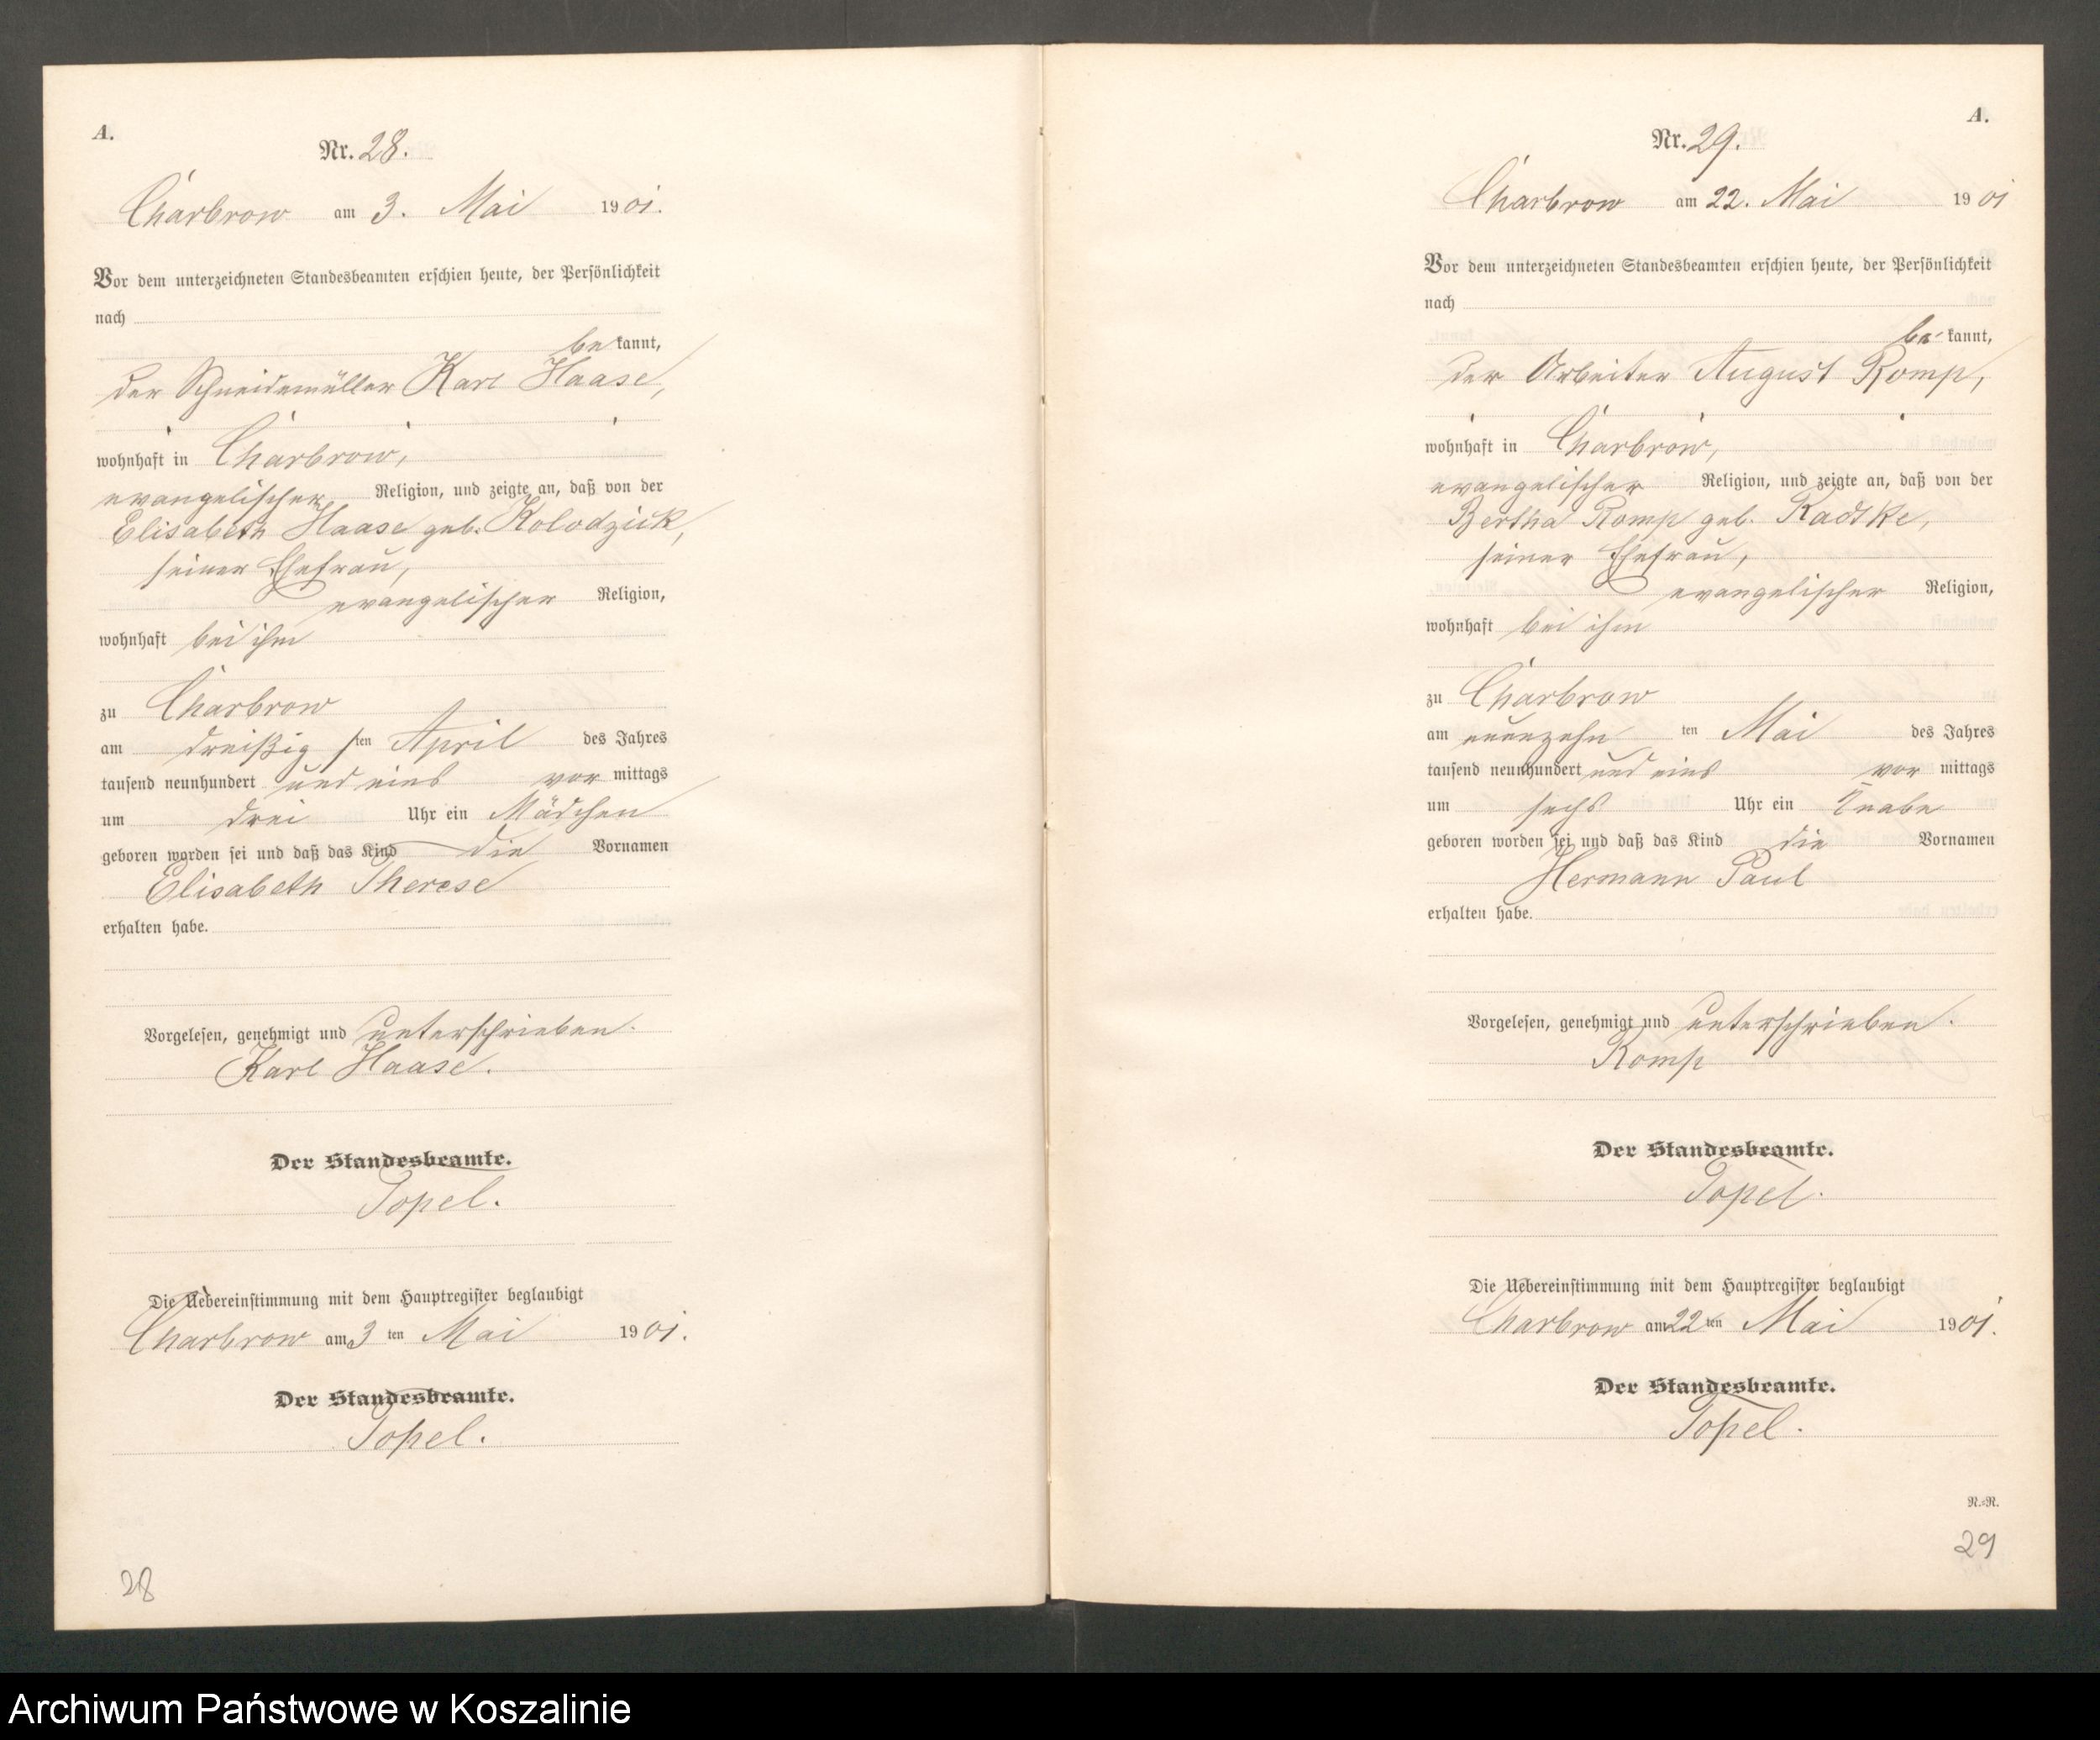 A.
Nr. 28.
Charbrow am 3. Mai 1901.
Vor dem unterzeichneten Standesbeamten erschien heute, der Persönlichkeit
nach
bekannt,
der Schneidemüller Karl Haase,
wohnhaft in Charbrow,
evangelischer Religion, und zeigte an, daß von der
Elisabeth Haase geb. Kolodzick,
seiner Ehefrau,
evangelischer Religion,
wohnhaft bei ihm
zu Charbrow
am dreißigsten April des Jahres
tausend neunhundert und eins vor mittags
um drei Uhr ein Mädchen
geboren worden sei und daß das Kind die Vornamen
Elisabeth Therese
erhalten habe.
Vorgelesen, genehmigt und unterschrieben.
Karl Haase.
Der Standesbeamte.
Topel.
Die Uebereinstimmung mit dem Hauptregister beglaubigt
Charbrow am 3 ten Mai 1901.
Der Standesbeamte.
Topel.
28
A.
Nr. 29.
Charbrow am 22. Mai 1901
Vor dem unterzeichneten Standesbeamten erschien heute, der Persönlichkeit
nach
be kannt,
der Arbeiter August Romp,
wohnhaft in Charbrow,
evangelischer Religion, und zeigte an, daß von der
Bertha Romp geb. Radtke,
seiner Ehefrau,
evangelischer Religion,
wohnhaft bei ihm
zu Charbrow
am neunzehn ten Mai des Jahres
tausend neunhundert und eins vor mittags
um sechs Uhr ein Knabe
geboren worden sei und daß das Kind die Vornamen
Hermann Paul
erhalten habe.
Vorgelesen, genehmigt und unterschrieben.
Romp
Der Standesbeamte.
Topel.
Die Uebereinstimmung mit dem Hauptregister beglaubigt
Charbrow am 22 ten Mai 1901.
Der Standesbeamte.
Topel.
N.=N.
29
Archiwum Państwowe w Koszalinie